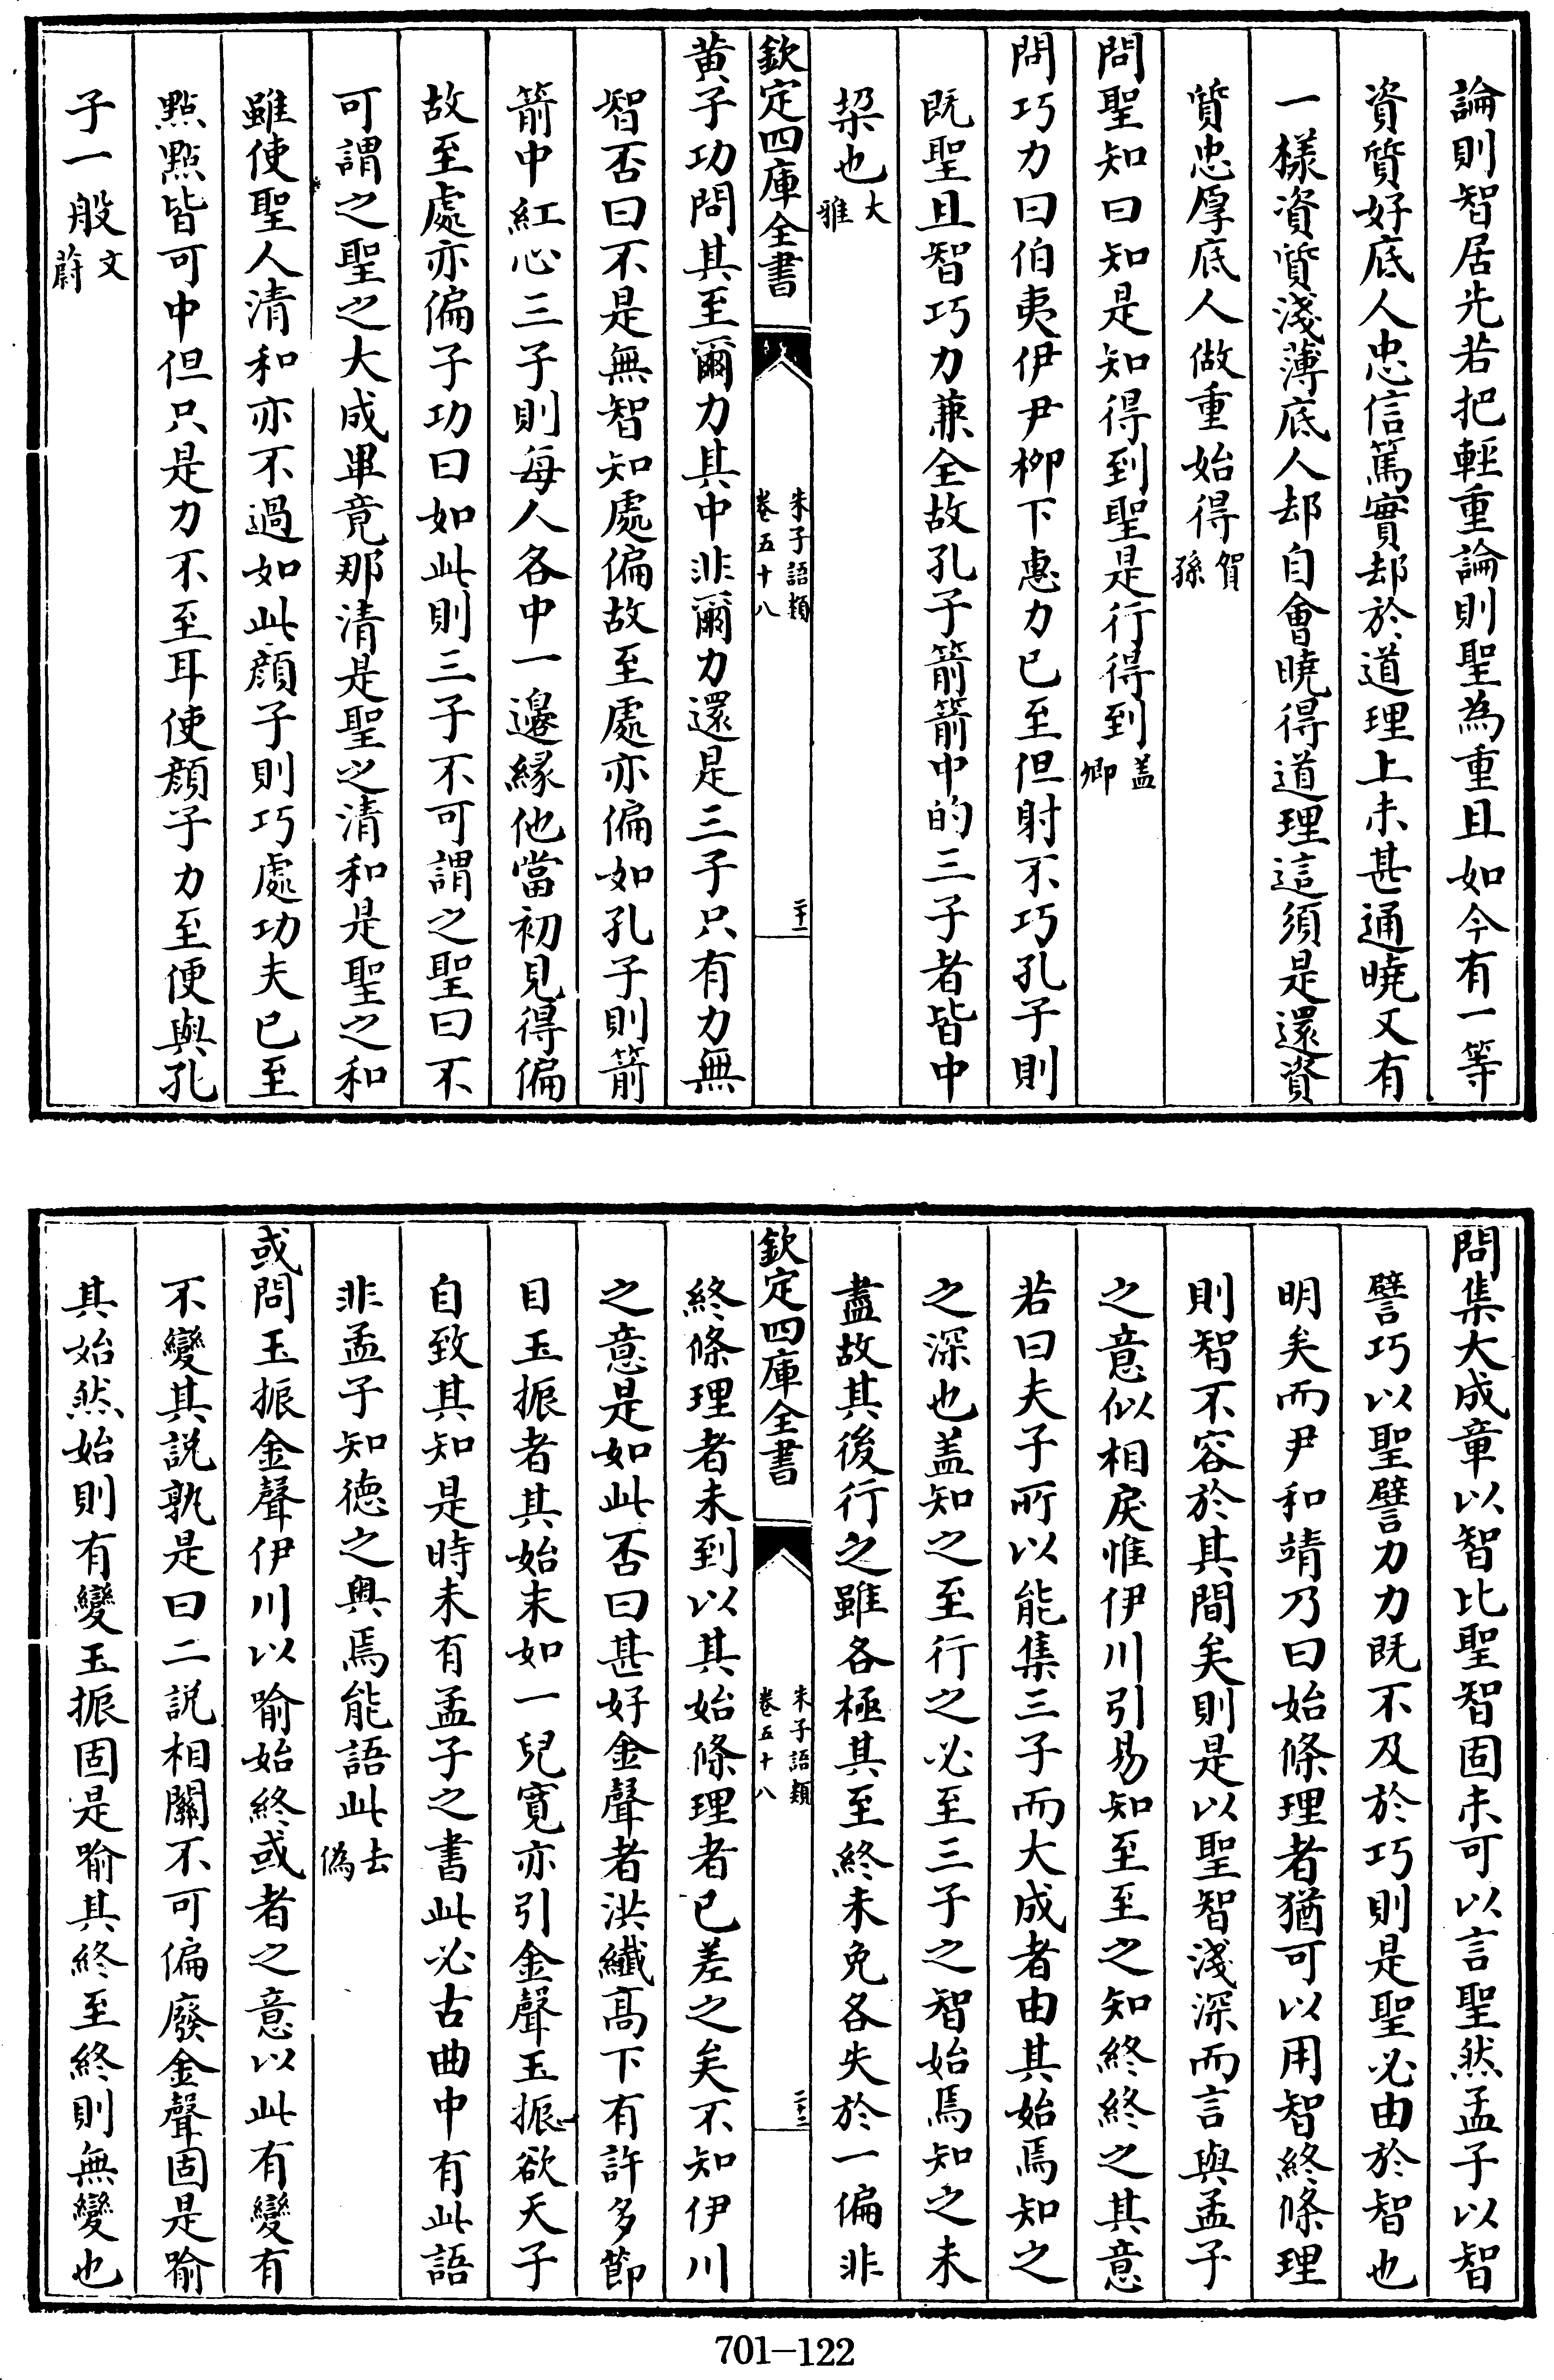 論則智居先若把輕重論則聖為重且如今有一等
資質好底人忠信篤實却於道理上未甚通曉又有
一樣資質淺薄底人却自會曉得道理這須是還資
質忠厚底人做重始得賀孫
問聖知曰知是知得到聖是行得到盖卿
問巧力曰伯夷伊尹栁下惠力已至但射不巧孔子則
既聖且智巧力兼全故孔子箭箭中的三子者皆中
垜也大雅
欽定四庫全書
朱子語類
卷五十八
二十一
黄子功問其至爾力其中非爾力還是三子只有力無
智否曰不是無智知處偏故至處亦偏如孔子則箭
箭中紅心三子則每人各中一邊緣他當初見得偏
故至處亦偏子功曰如此則三子不可謂之聖曰不
可謂之聖之大成畢竟那清是聖之清和是聖之和
雖使聖人清和亦不過如此顔子則巧處功夫已至
點點皆可中但只是力不至耳使顔子力至便與孔
子一般文蔚
問集大成章以智比聖智固未可以言聖然孟子以智
譬巧以聖譬力力既不及於巧則是聖必由於智也
明矣而尹和靖乃曰始條理者猶可以用智終條理
則智不容於其間矣則是以聖智淺深而言與孟子
之意似相戾惟伊川引易知至至之知終終之其意
若曰夫子所以能集三子而大成者由其始焉知之
之深也盖知之至行之必至三子之智始焉知之未
盡故其後行之雖各極其至終未免各失於一偏非
欽定四庫全書
朱子語類
卷五十八
二十二
終條理者未到以其始條理者已差之矣不知伊川
之意是如此否曰甚好金聲者洪纖髙下有許多節
目玉振者其始末如一兒寛亦引金聲玉振欲天子
自致其知是時未有孟子之書此必古曲中有此語
非孟子知徳之奥焉能語此去偽
或問玉振金聲伊川以喻始終或者之意以此有變有
不變其説孰是曰二説相闗不可偏廢金聲固是喻
其始然始則有變玉振固是喻其終至終則無變也
701—122